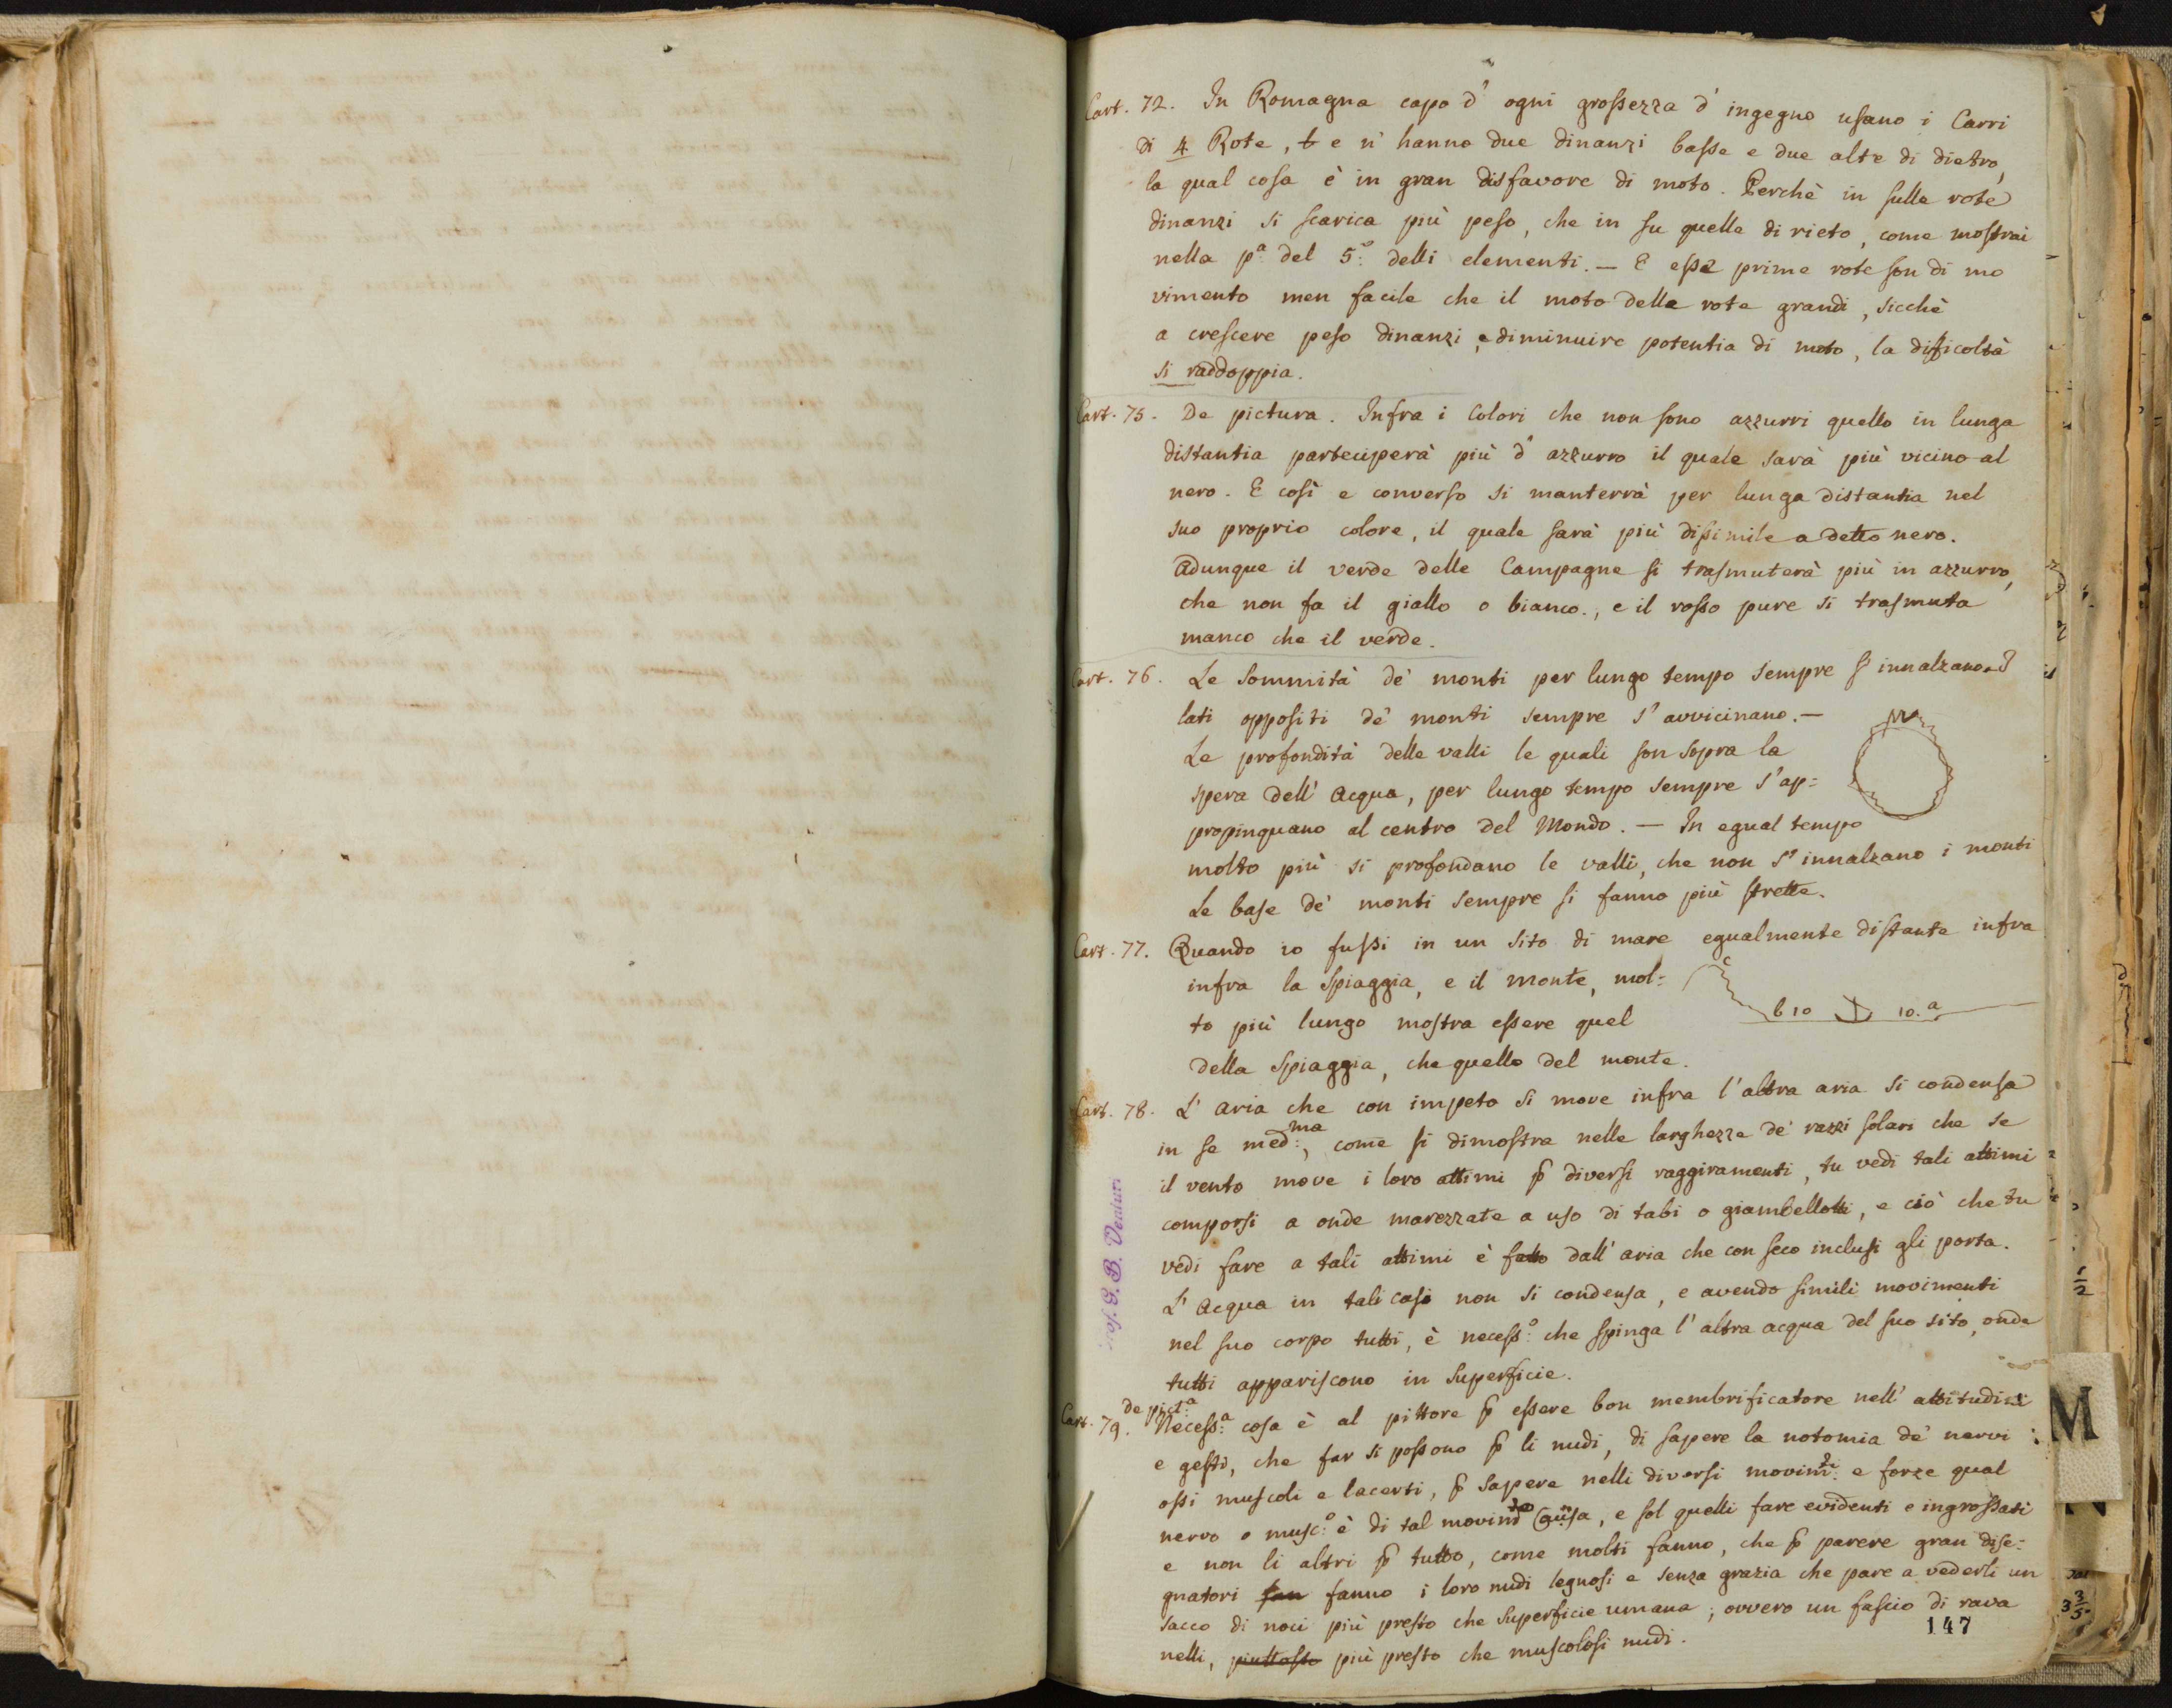 Cart. 72. In Romagna capo d' ogni grossezza d' ingegno usano i Carri
di 4 Rote, e n' hanno due dinanzi basse e due alte di dietro,
la qual cosa è in gran disfavore di moto. Perchè in sulle rote
dinanzi si scarica più peso, che in su quelle di rieto, come mostrai
nella pª: del 5º: delli elementi. — E esse prime rote son di mo
vimento men facile che il moto delle rote grandi, sicchè
a crescere peso dinanzi e diminuire potentia di moto, la difficoltà
si raddoppia.
Cart. 75. De pictura. Infra i Colori che non sono azzurri quello in lunga
distantia parteciperà più d' azzurro il quale sarà più vicino al
nero. E così e converso si manterrà per lunga distantia nel
suo proprio colore, il quale sarà più dissimile a detto nero.
Adunque il verde delle Campagne si trasmuterà più in azzurro,
che non fa il giallo o bianco., e il rosso pure si trasmuta
manco che il verde.
Cart. 76. Le Sommità de' monti per lungo tempo sempre s' innalzano.
lati oppositi de' monti sempre s' avvicinano. —
Le profondità delle valli le quali son sopra la
spera dell' Acqua, per lungo tempo sempre s' ap=
propinquano al centro del Mondo. — In egual tempo
molto più si profondano le valli, che non s' innalzano i monti
Le base de' monti sempre si fanno più strette.
Cart. 77. Quando io fussi in un sito di mare egualmente distante infra
infra la Spiaggia, e il monte, mol=
to più lungo mostra essere quel
della Spiaggia, che quello del monte.
b 10 10. a
Cart. 78. L' aria che con impeto si move infra l' altra aria si condensa
in se med:ma, come si dimostra nelle larghezze de' razzi solari che se
il vento move i loro attimi p diversi raggiramenti, tu vedi tali attimi
comporsi a onde marezzate a uso di tabi o giambellotti, e ciò che tu
vedi fare a tali attimi è fatto dall' aria che con seco inclusi gli porta.
L' Acqua in tali casi non si condensa, e avendo simili movimenti
nel suo corpo tutti, è necessº: che spinga l' altra acqua del suo sito, onde
tutti appariscono in Superficie.
de pictª:
Cart. 79. Necessª: cosa è al pittore p essere bon membrificatore nell' attitudini
e gesti, che far si possono p li nudi, di sapere la notomia de' nervi
ossi muscoli e lacerti, p sapere nelli diversi movimti: e forze qual
nervo o muscº: è di tal movimto causa, e sol quelli fare evidenti e ingrossati
e non li altri p tutto, come molti fanno, che p parere gran dise=
gnatori fan fanno i loro nudi legnosi e senza grazia che pare a vederli un
sacco di noci più presto che Superficie umana; ovvero un fascio di rava
nelli, piuttosto più presto che muscolosi nudi.
147
Prof. G. B. Venturi
M